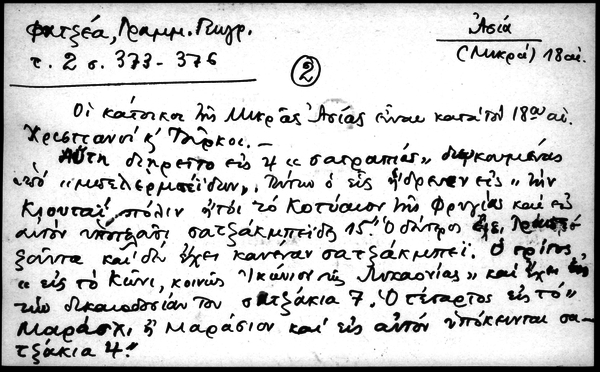 Φατζέα, Γραμμ. Γεωγρ.
τ. 2 σ. 373 - 376
Ἀσία
(Μικρά) 18 αἰ.
2
Οἱ κάτοικοι τῆς Μικρᾶς Ἀσίας εἶναι κατὰ τὸν 18ον αἰ.
Χριστιανοὶ κ' Τοῦρκοι. —
Αὕτη διῃρεῖτο εἰς 4 "σατραπίας" διοικουμένας
ὑπὸ "μπεϊλέρμπέϊδων". Τούτων ὁ εἷς ἥδρευεν εἰς "τὴν
Κιουταῖ πόλιν ἤτοι τὸ Κοτύαιον τῆς Φρυγίας καὶ εἰς
αὐτὸν ὑπόκεινται σατζάκμπεϊδες 15." Ὁ δεύτερος
καὶ δὲν ἔχει κανέναν σατζάκμπεϊ. Ὁ τρίτος
"εἰς τὸ Κώνι, κοινῶς Ἰκόνιον τῆς Λυκαονίας" καὶ ἔχει ὑπὸ
τὴν δικαιοδοσίαν του σατζάκια 7. Ὁ τέταρτος εἰς τὸ "
Μαράσχι ἢ Μαράσιον καὶ εἰς αὐτὸν ὑπόκεινται σα-
τζάκια 4."